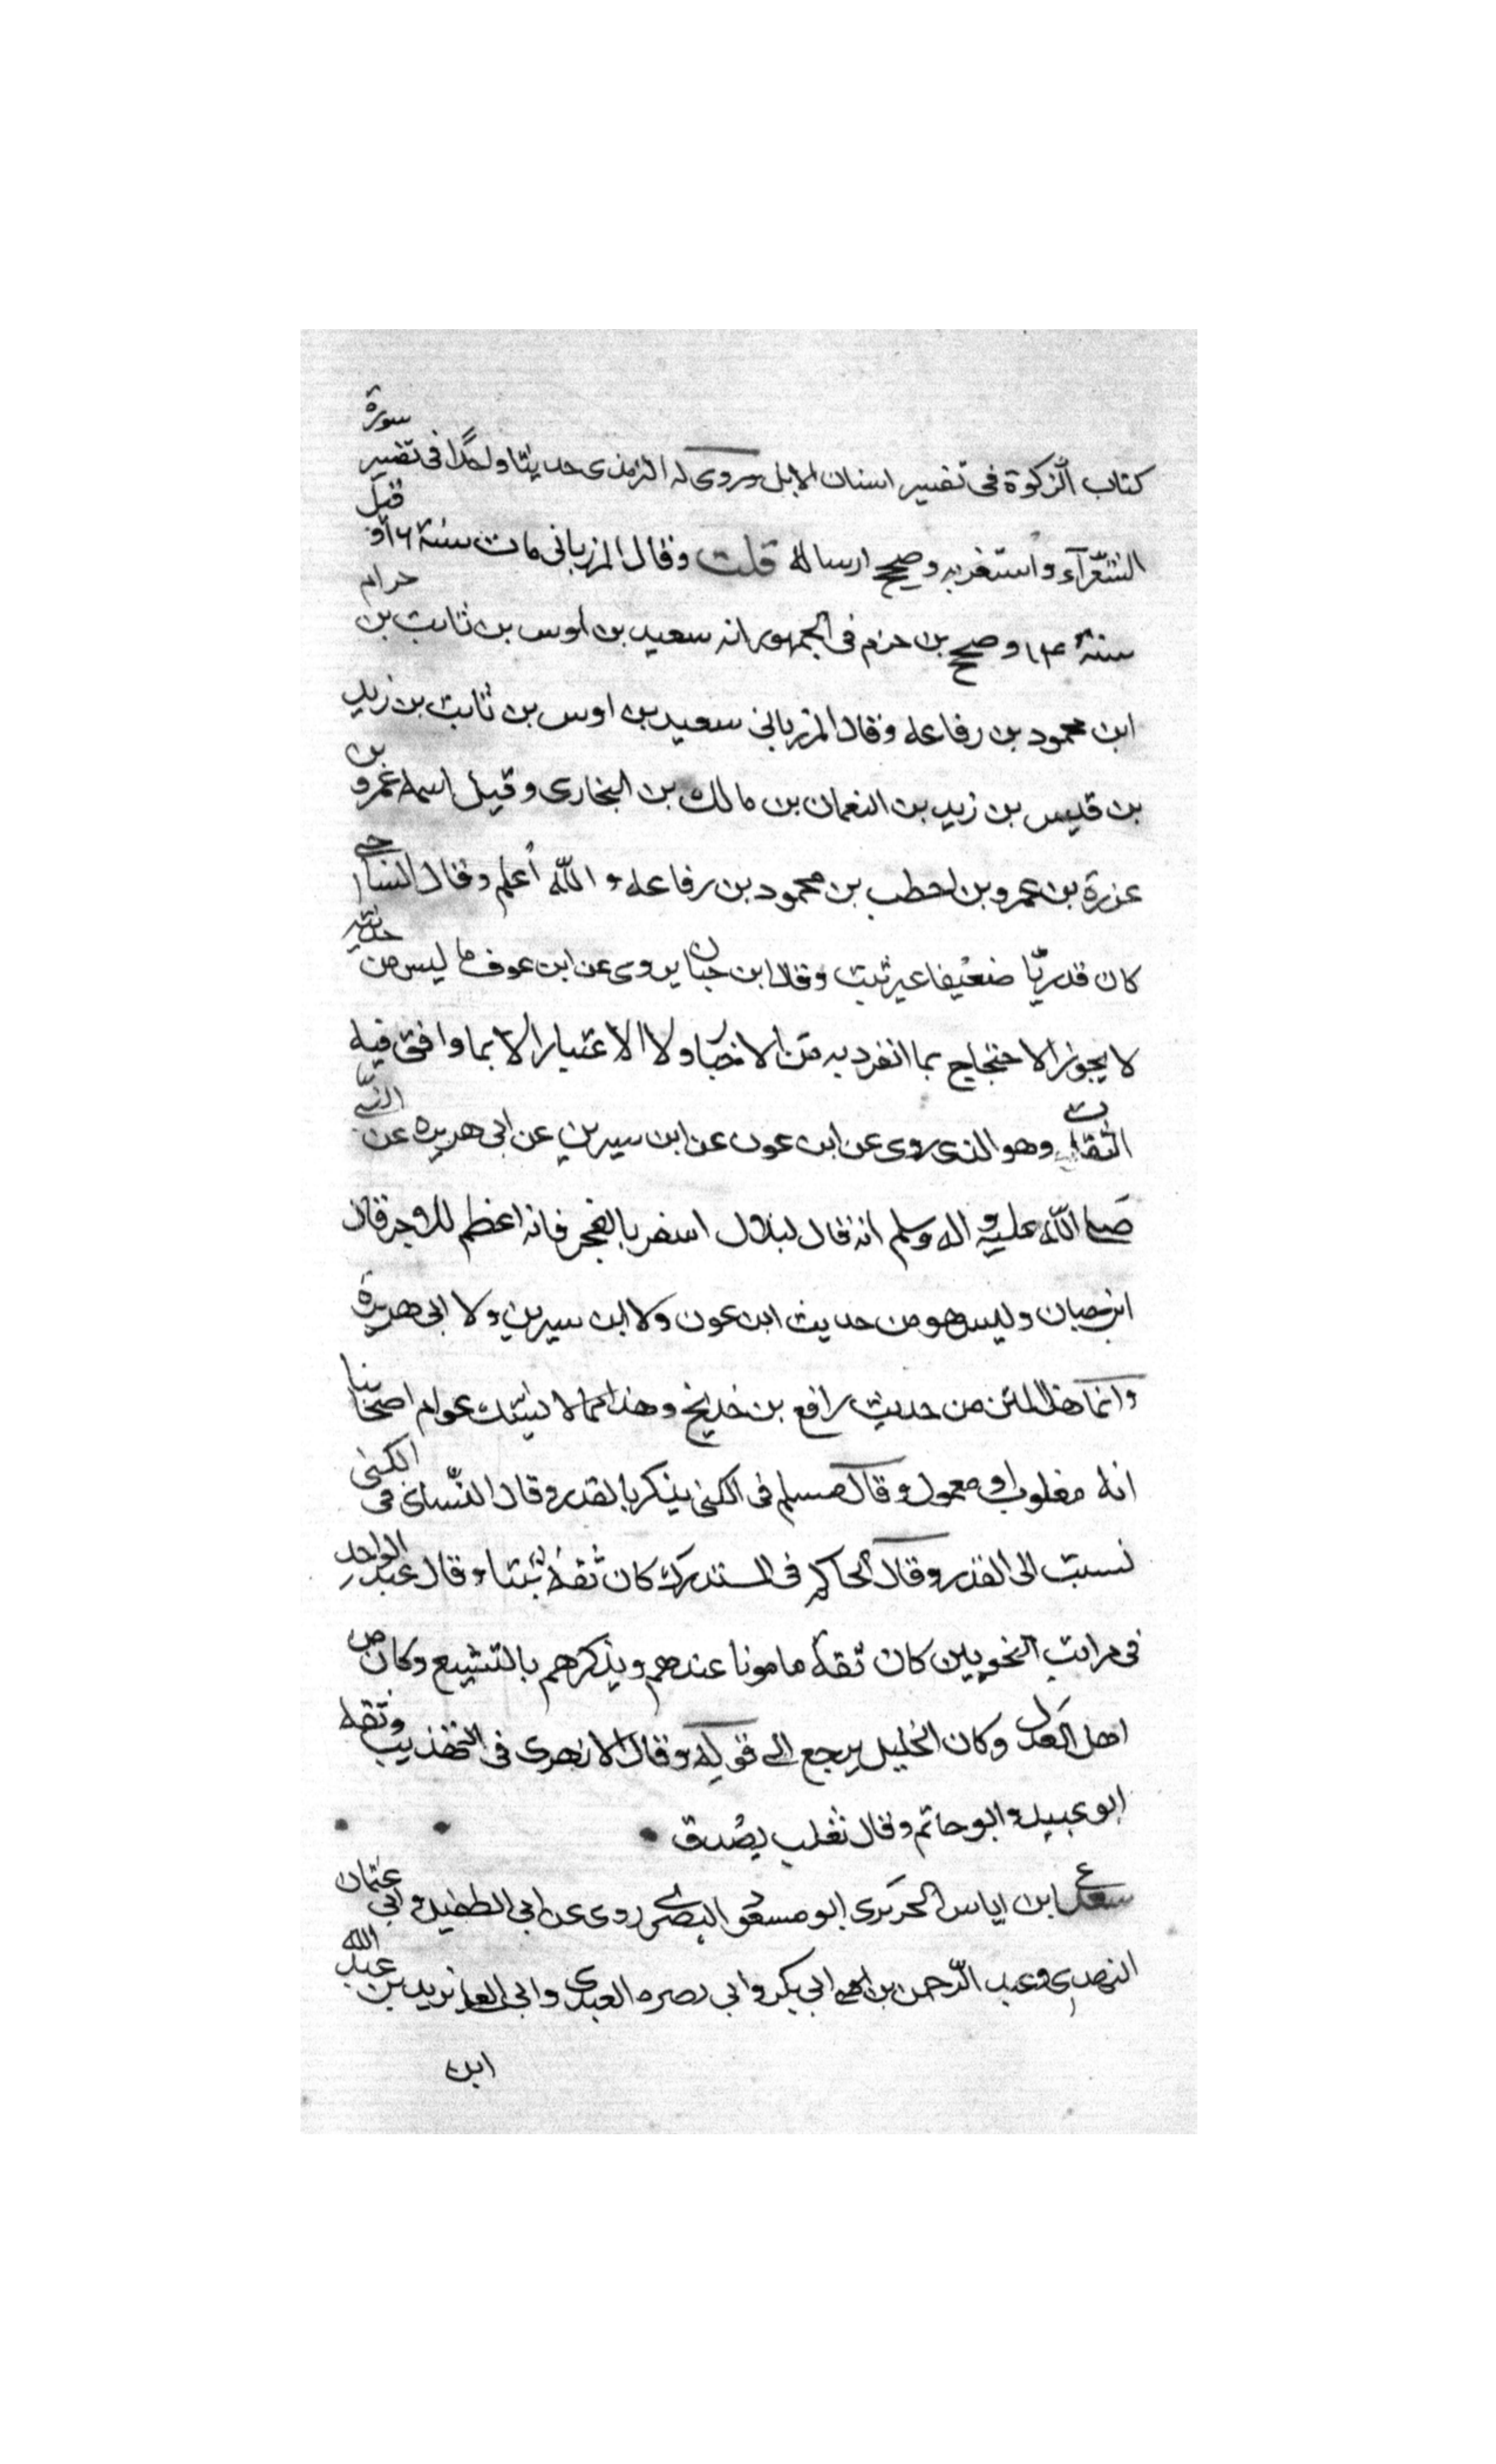 كتاب الزكوة فى تفسير اسنان الابل وروى له الترمذى حديثا واحدًا فى تفسير سورة
الشعرآء واستغربه وصحح ارساله قلت وقال المرزبانى مات سنة ٢١٦ وقيل
سنة ٢١٤ وصحح بن حزم فى الجمهور انه سعيد بن اوس بن ثابت بن حرام
ابن محمود بن رفاعه وقال المرزبانى سعيد بن اوس بن ثابت بن زيد
بن قيس بن زيد بن النعمان بن مالك بن البخارى وقيل اسمه عمرو بن
عزرة بن عمرو بن احطب بن محمود بن رفاعه والله أعلم وقال الساجى
كان قدريّا ضعيفا غير ثبت وقال ابن حبان يروى عن ابن عوف ما ليس من حديثه
لا يجوز الاحتجاج بما انفرد به من الاخبار ولا الاعتبار الا بما وافق فيه
الثقات وهو الذى روى عن ابن عون عن ابن سيرين عن ابى هريره عن النبى
صلى الله عليه واله وسلم انه قال لبلال اسفر بالفجر فانه اعظم للاجر قال
ابن حبان وليس هو من حديث ابن عون ولا ابن سيرين ولا ابى هريرة
وانما هذا المتن من حديث رافع بن خديج وهذا مما لا يشك عوام اصحابنا
انه مغلوب او معمول وقال مسلم فى الكنى يذكر بالقدر وقال النسائى فى الكنى
نسبت الى القدر وقال الحاكم فى المستدرك كان ثقة ثبتا وقال عبد الواحد
فى مراتب النحويين كان ثقة مامونا عندهم ويذكرهم بالتشيع وكان من
اهل العدل وكان الخليل يرجع الى قوله وقال الازهرى فى التهذيب وثقه
ابو عبيد وابو حاتم وقال ثعلب يصدق
سعد ابن اياس الحريرى ابو مسعود البصرى روى عن ابى الطفيل وابى عثمان
النهدى وعبد الرحمن بن ابى بكر وابى نصره العبدى وابى العلا يزيد بن عبد الله
ابن